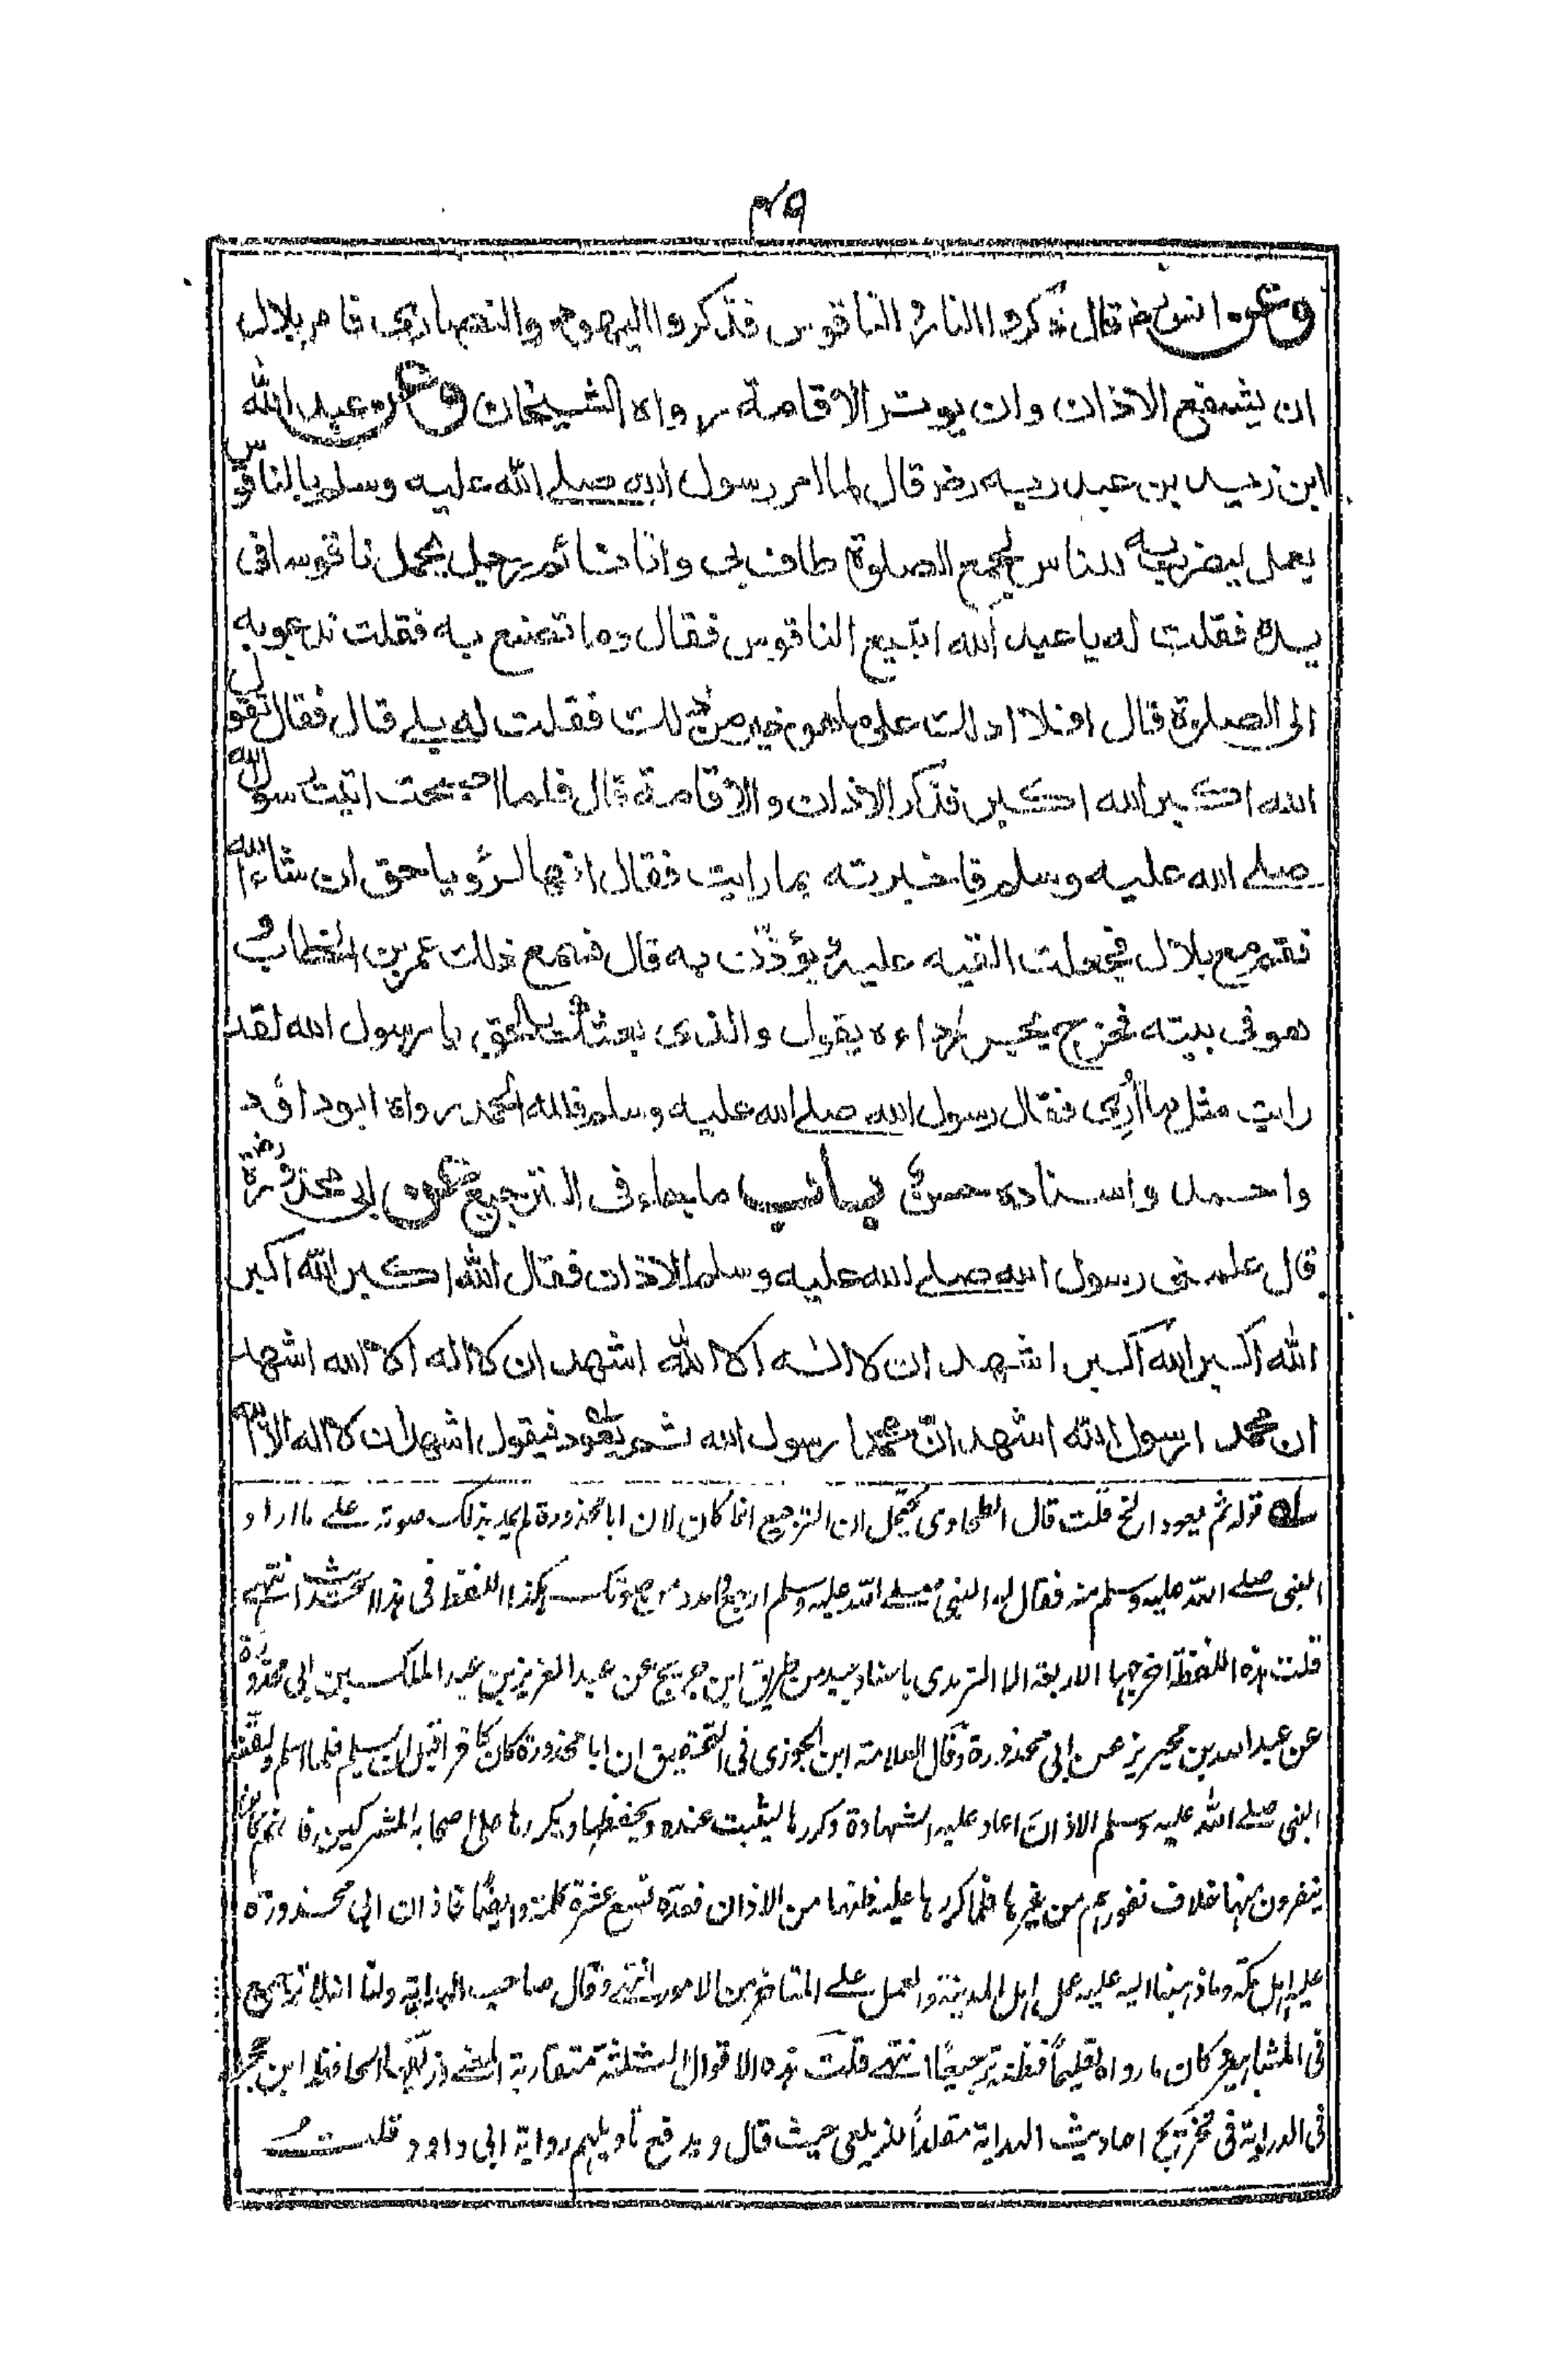 ٤٩
وعن انس رض قال ذكروا النار والناقوس فذكروا اليهود والنصارى فامر بلال
ان يشفع الاذان وان يوتر الاقامة رواه الشيخان وعن عبد الله
ابن زيد بن عبد ربه رض قال لما امر رسول الله صلى الله عليه وسلم بالناقوس
يعمل ليضرب به للناس لجمع الصلوة طاف بى وانا نائم رجل يحمل ناقوسا فى
يده فقلت له يا عبد الله اتبيع الناقوس فقال وما تصنع به فقلت ندعو به
الى الصلوة قال افلا ادلك على ما هو خير من ذلك فقلت له بلى قال فقال تقول
الله اكبر الله اكبر فذكر الاذان والاقامة قال فلما اصبحت اتيت رسول الله
صلى الله عليه وسلم فاخبرته بما رايت فقال انها لرؤيا حق ان شاء الله
فقم مع بلال فجعلت القيه عليه ويؤذن به قال فسمع ذلك عمر بن الخطاب و
هو فى بيته فخرج يجر رداءه يقول والذى بعثك بالحق يا رسول الله لقد
رايت مثل ما أُرِىَ فقال رسول الله صلى الله عليه وسلم فلله الحمد رواه ابو داؤد
واحمد واسناده حسن باب ما جاء فى الترجيع عن ابى محذورة رض
قال علمنى رسول الله صلى الله عليه وسلم الاذان فقال الله اكبر الله اكبر
الله اكبر الله اكبر اشهد ان لا اله الا الله اشهد ان لا اله الا الله اشهد
ان محمدا رسول الله اشهد ان محمدا رسول الله ثم يعود فيقول اشهد ان لا اله الا الله
له قوله ثم يعود الخ قلت قال الطحاوى يحتمل ان الترجيع انما كان لان ابا محذورة لم يمد بذلك صوته على ما اراد
النبى صلى الله عليه وسلم منه فقال له النبى صلى الله عليه وسلم ارجع وامدد من صوتك هكذا اللفظ فى هذا الحديث انتهى
قلت هذه اللفظة اخرجها الاربعة الا الترمذى باسناد جيد من طريق ابن جريج عن عبد العزيز بن عبد الملك بن ابى محذورة
عن عبد الله بن محيريز عن ابى محذورة وقال العلامة ابن الجوزى فى التحقيق ان ابا محذورة كان كافرا قبل ان يسلم فلما اسلم ولقنه
النبى صلى الله عليه وسلم الاذان اعاد عليه الشهادة وكررها ليثبت عنده ويحفظها ويكررها على اصحابه المشركين فانهم كانوا
ينفرون منها خلاف نفورهم من غيرها فلما كررها عليه ظنها من الاذان فعده تسع عشرة كلمة وايضًا فاذان ابى محذورة
عليه اهل مكة وما ذهبنا اليه عليه عمل اهل المدينة والعمل على المتاخر من الامور انتهى وقال صاحب الهداية ولنا انه لا ترجيع
فى المشاهير وكان ما رواه تعليمًا فظنه ترجيعًا انتهى قلت هذه الاقوال الثلثة متقاربة المعنى الحافظ ابن حجر
فى الدراية فى تخريج احاديث الهداية مقلدًا للزيلعى حيث قال ويدفع تاويلهم رواية ابى داود قلت